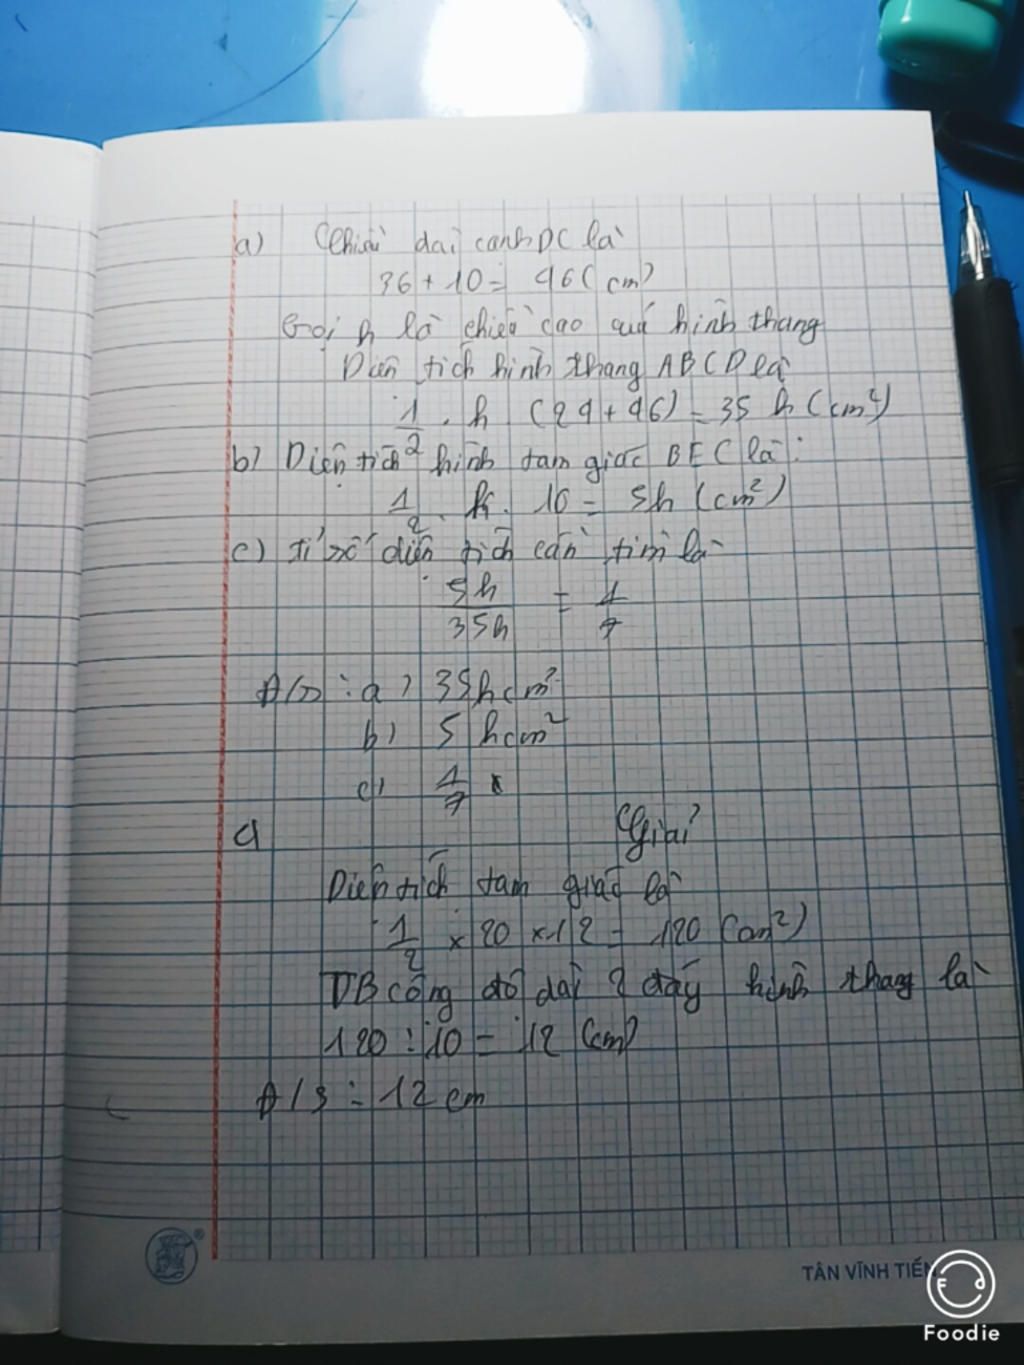 a) Chiều dài cạnh DC là
36 + 10 = 46 (cm)
Gọi h là chiều cao quả hình thang
Diện tích hình thang ABCD là
1/2 . h (24 + 46) = 35 h (cm²)
b) Diện tích hình tam giác BEC là:
1/2 . h . 10 = 5h (cm²)
c) Tỉ số diện tích cần tìm là
5h/35h = 1/7
Đ/s : a) 35h cm²
b) 5 hcm²
c) 1/7
4 Giải
Diện tích tam giác là
1/2 × 20 × 12 = 120 (cm²)
TB cộng độ dài 2 đáy hình thang là
120 : 10 = 12 (cm)
Đ/s : 12 cm
TÂN VĨNH TIẾN
Foodie